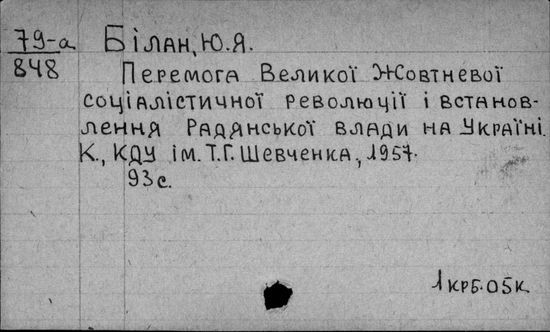 79-а Білан, Ю.Я.
848
Перемога Великої Жовтневої
соціалістичної революції і встанов-
лення Радянської влади на Україні.
К., КДУ ім. Т.Г. Шевченка, 1957.
93 с.
1 крб. 05 к.